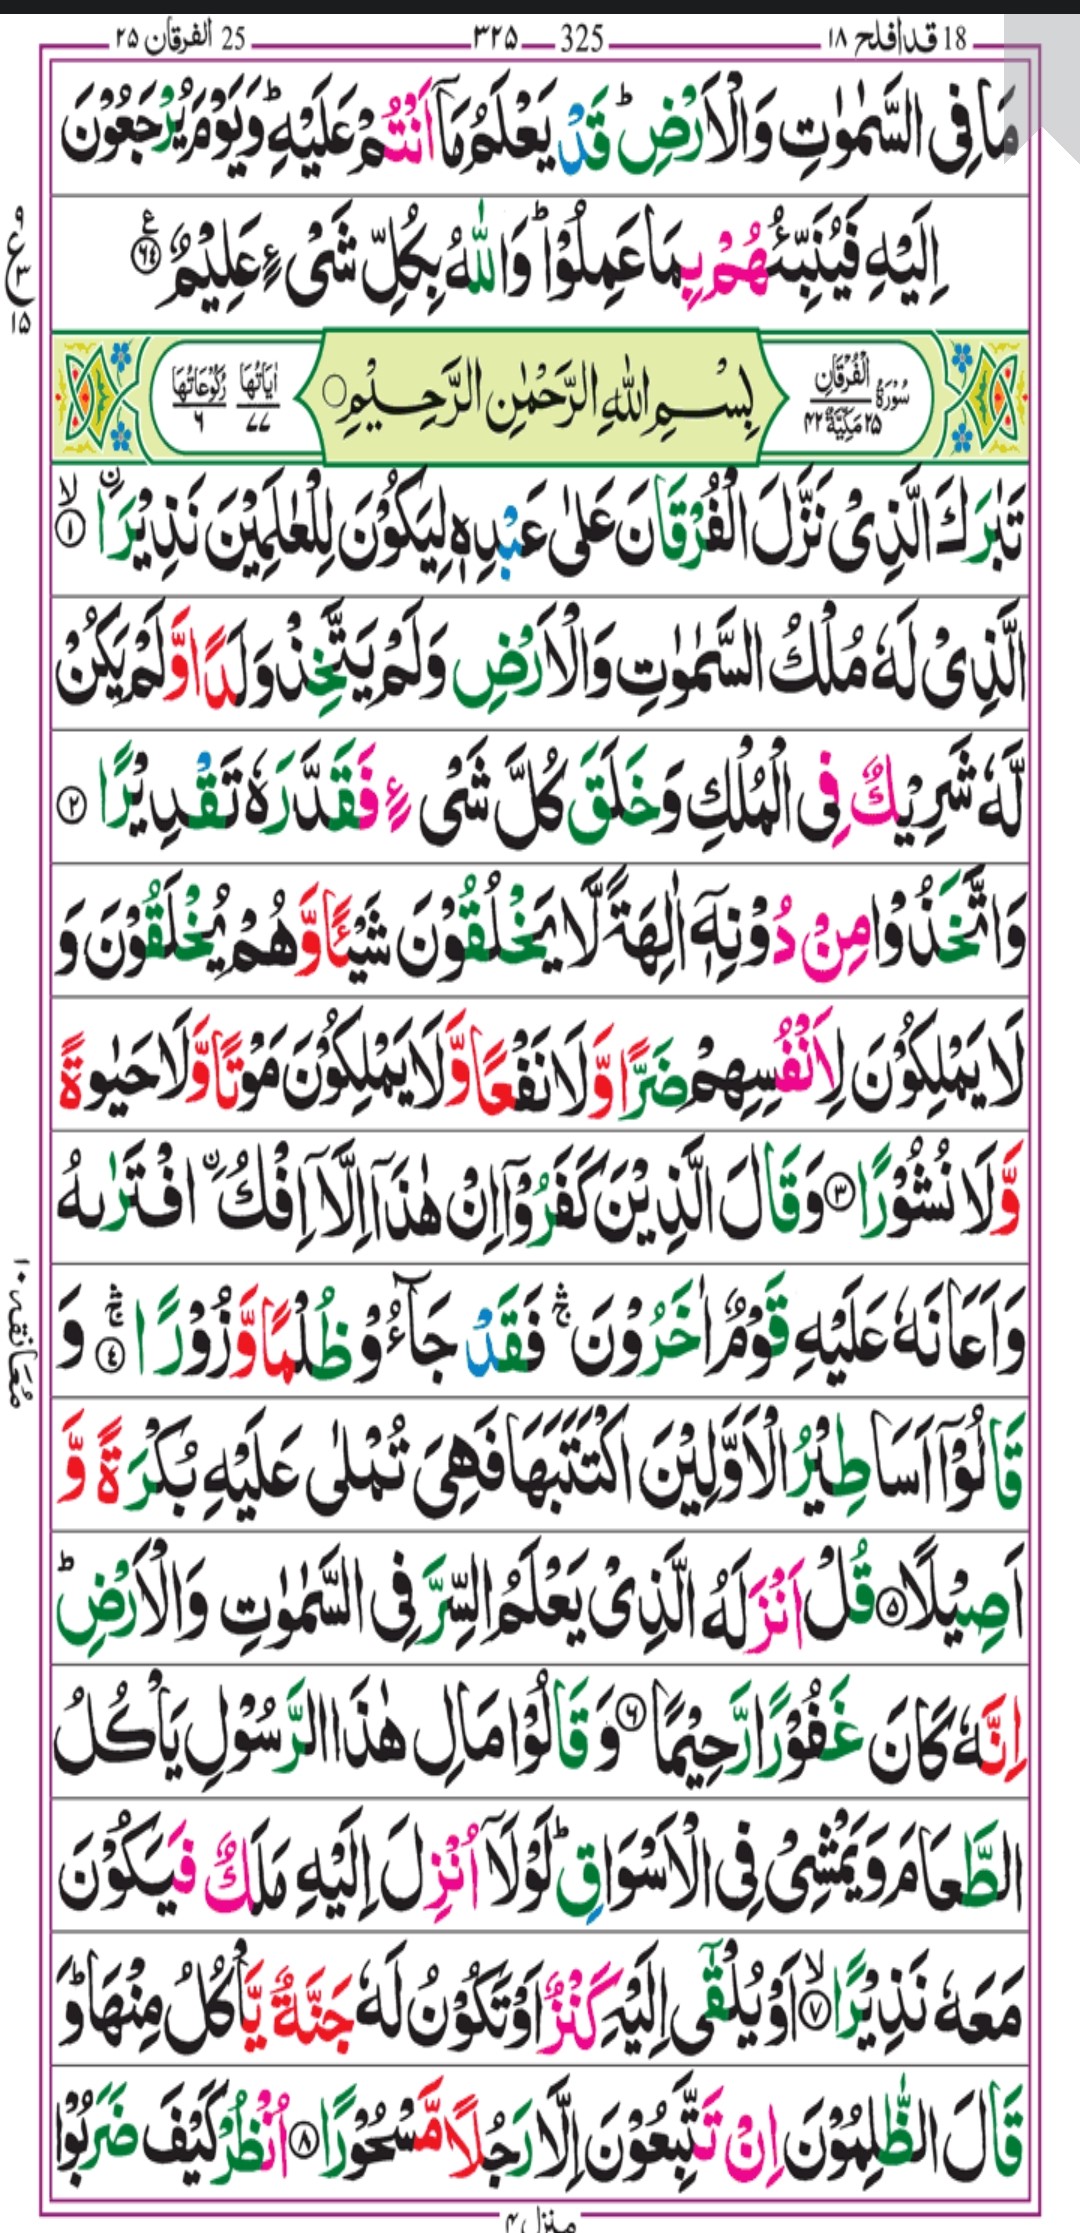 18 قد افلح ١٨ 325 ٣٢٥ 25 الفرقان ٢٥
مَا فِی السَّمٰوٰتِ وَالْاَرْضِ ؕ قَدْ یَعْلَمُ مَاۤ اَنْتُمْ عَلَیْهِ ؕ وَیَوْمَ یُرْجَعُوْنَ
اِلَیْهِ فَیُنَبِّئُهُمْ بِمَا عَمِلُوْا ؕ وَاللّٰهُ بِكُلِّ شَیْءٍ عَلِیْمٌ ۟ ع ٦٤
ع ٩ ٣ ١٥
سُوْرَةُ الْفُرْقَانِ ٢٥ مَكِّیَّةٌ ٤٢
بِسْمِ اللّٰهِ الرَّحْمٰنِ الرَّحِیْمِ
اٰیَاتُهَا ٧٧ رُكُوْعَاتُهَا ٦
تَبٰرَكَ الَّذِیْ نَزَّلَ الْفُرْقَانَ عَلٰی عَبْدِهٖ لِیَكُوْنَ لِلْعٰلَمِیْنَ نَذِیْرَا ۙ ١
الَّذِیْ لَهٗ مُلْكُ السَّمٰوٰتِ وَالْاَرْضِ وَلَمْ یَتَّخِذْ وَلَدًا وَّلَمْ یَكُنْ
لَّهٗ شَرِیْكٌ فِی الْمُلْكِ وَخَلَقَ كُلَّ شَیْءٍ فَقَدَّرَهٗ تَقْدِیْرًا ٢
وَاتَّخَذُوْا مِنْ دُوْنِهٖۤ اٰلِهَةً لَّا یَخْلُقُوْنَ شَیْـًٔا وَّهُمْ یُخْلَقُوْنَ وَ
لَا یَمْلِكُوْنَ لِاَنْفُسِهِمْ ضَرًّا وَّلَا نَفْعًا وَّلَا یَمْلِكُوْنَ مَوْتًا وَّلَا حَیٰوةً
وَّلَا نُشُوْرًا ٣ وَقَالَ الَّذِیْنَ كَفَرُوْۤا اِنْ هٰذَاۤ اِلَّاۤ اِفْكُ ن افْتَرٰىهُ
وَاَعَانَهٗ عَلَیْهِ قَوْمٌ اٰخَرُوْنَ ۛۚ فَقَدْ جَآءُوْ ظُلْمًا وَّزُوْرًا ۛۚ ٤ وَ
معانقه ١٠
قَالُوْۤا اَسَاطِیْرُ الْاَوَّلِیْنَ اكْتَتَبَهَا فَهِیَ تُمْلٰی عَلَیْهِ بُكْرَةً وَّ
اَصِیْلًا ٥ قُلْ اَنْزَلَهُ الَّذِیْ یَعْلَمُ السِّرَّ فِی السَّمٰوٰتِ وَالْاَرْضِ ؕ
اِنَّهٗ كَانَ غَفُوْرًا رَّحِیْمًا ٦ وَقَالُوْا مَالِ هٰذَا الرَّسُوْلِ یَاْكُلُ
الطَّعَامَ وَیَمْشِیْ فِی الْاَسْوَاقِ ؕ لَوْلَاۤ اُنْزِلَ اِلَیْهِ مَلَكٌ فَیَكُوْنَ
مَعَهٗ نَذِیْرًا ۙ ٧ اَوْ یُلْقٰۤی اِلَیْهِ كَنْزٌ اَوْ تَكُوْنُ لَهٗ جَنَّةٌ یَّاْكُلُ مِنْهَا ؕ وَ
قَالَ الظّٰلِمُوْنَ اِنْ تَتَّبِعُوْنَ اِلَّا رَجُلًا مَّسْحُوْرًا ٨ اُنْظُرْ كَیْفَ ضَرَبُوْا
منزل ٤